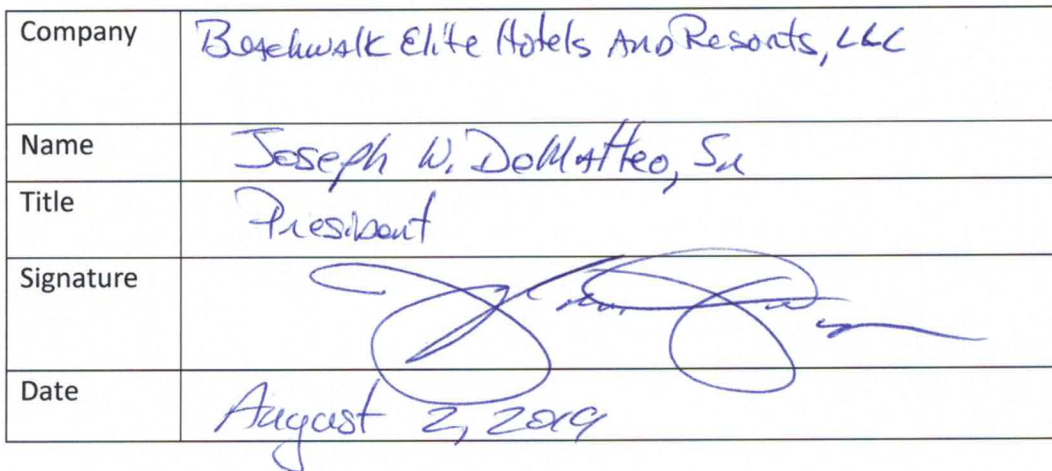 Company Beachwalk Elite Hotels And Resorts, LLC
Name Joseph W. DeMatteo, Sr
Title President
Signature
Date August 2, 2019